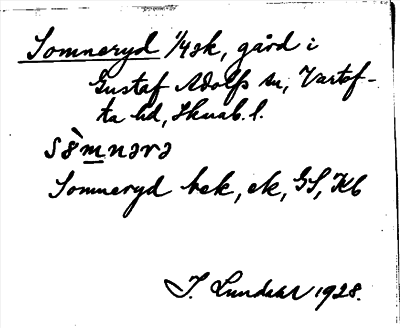 Somneryd 1/4 sk, gård i
Gustaf Adolfs sn, Vartof-
ta hd, Skarab. l.
sòmnərə
Somneryd bek, ek, GS, Kb
J. Lundahl 1928.